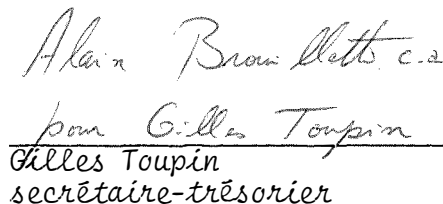 Alain Brouillette c.a
pour Gilles Toupin
Gilles Toupin
secrétaire-trésorier